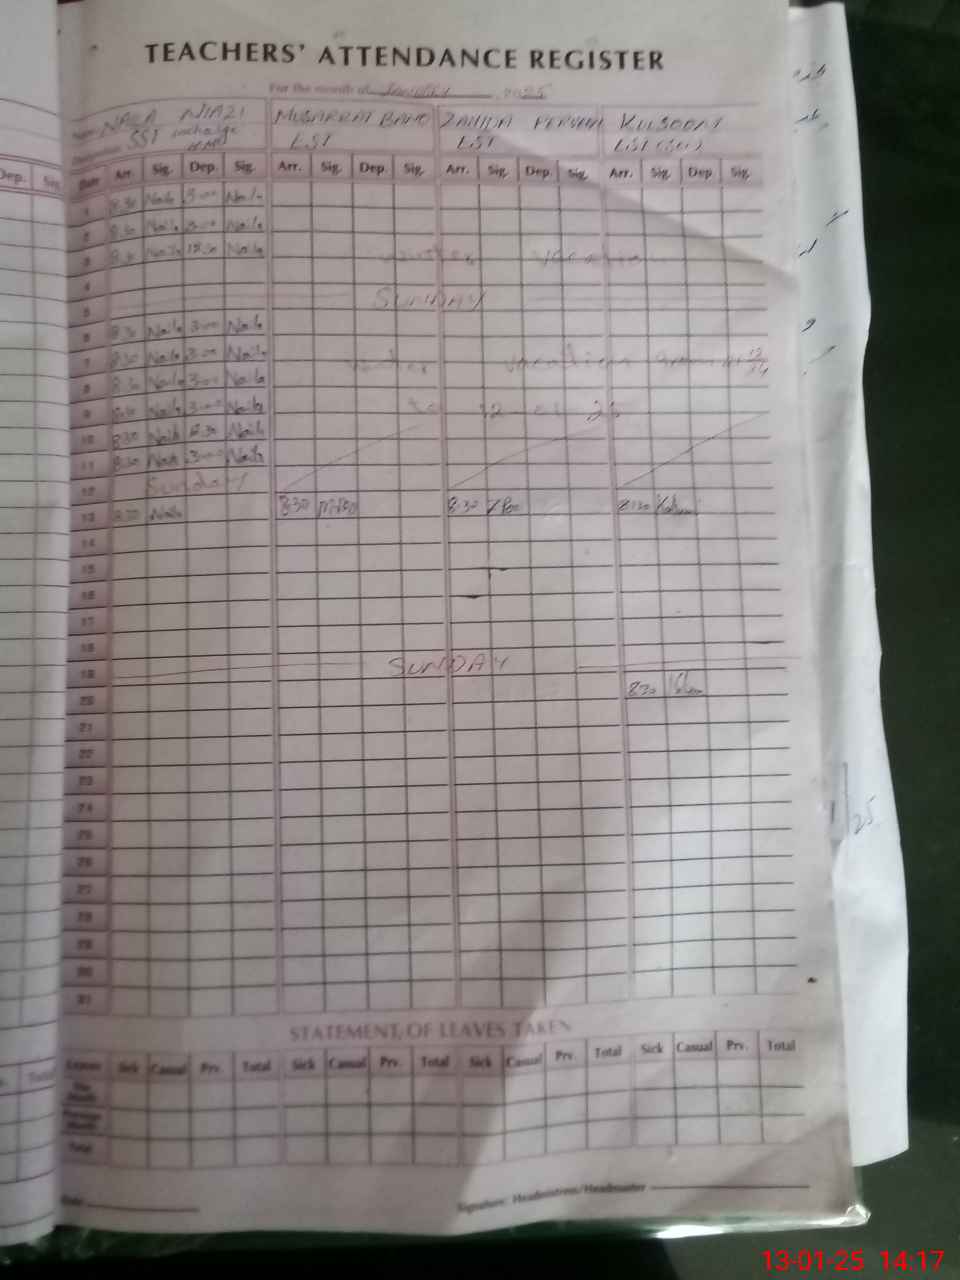 TEACHERS' ATTENDANCE REGISTER
For the month of January 2025
NAILA NIAZI MUSARRAT BANO ZAHIDA PERVEEN KULSOOM
SST incharge EST EST EST (Sci)
Date Arr. Sig. Dep. Sig. Arr. Sig. Dep. Sig. Arr. Sig. Dep. Sig. Arr. Sig. Dep. Sig.
1 8:30 Naila 3:00 Naila
2 8:30 Naila 3:00 Naila
3 8:30 Naila 12:30 Naila winter vacation
4
5 SUNDAY
6 8:30 Naila 3:00 Naila
7 8:30 Naila 3:00 Naila winter vacations from
8 8:30 Naila 3:00 Naila
9 8:30 Naila 3:00 Naila to 12-01-25
10 8:30 Naila 12:30 Naila
11 8:30 Naila 3:00 Naila
12 Sunday
13 8:30 Naila 8:30 8:30 8:30
14
15
16
17
18
19 SUNDAY
20 8:30
21
22
23
24
25
26
27
28
29
30
31
STATEMENT OF LEAVES TAKEN
Leaves Sick Casual Prv. Total Sick Casual Prv. Total Sick Casual Prv. Total Sick Casual Prv. Total
Total
Signature: Headmistress/Headmaster
13-01-25 14:17